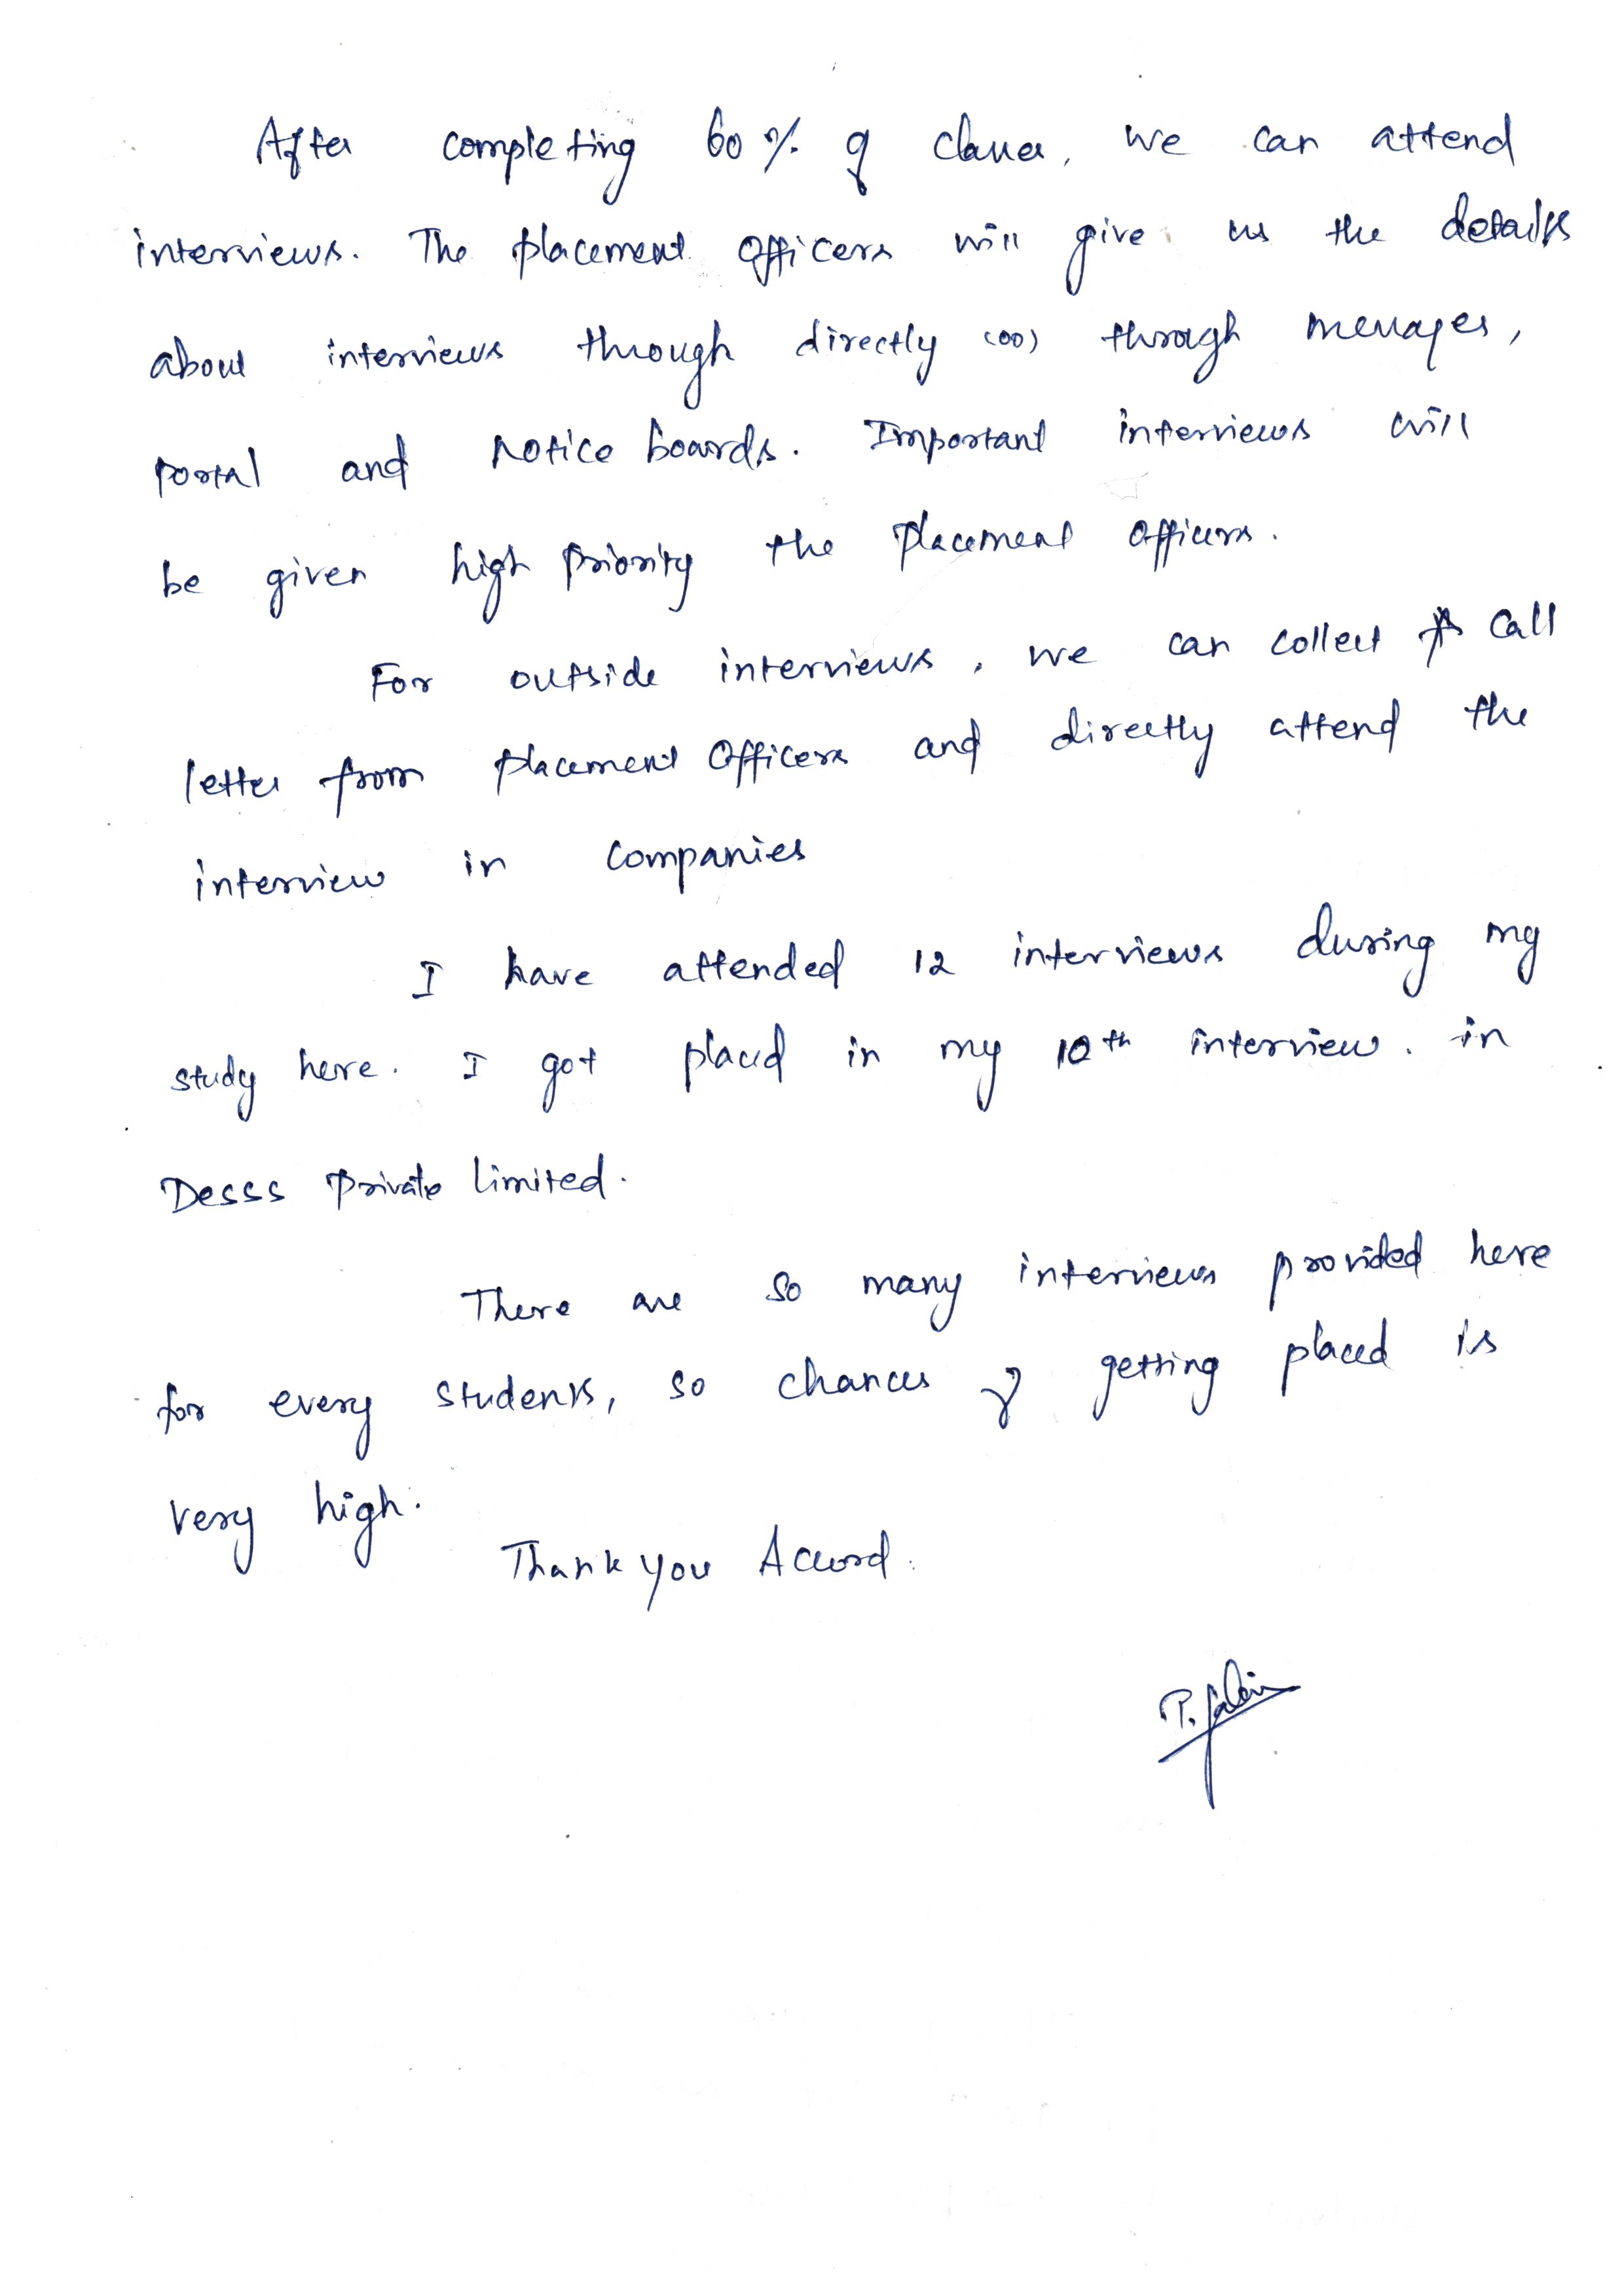 After completing 60% of classes, we can attend
interviews. The placement officers will give us the details
about interviews through directly (or) through messages,
portal and notice boards. Important interviews will
be given high priority the placement officers.
For outside interviews, we can collect call
letter from placement officers and directly attend the
interview in companies
I have attended 12 interviews during my
study here. I got placed in my 10th interview. in
Desss Private limited.
There are so many interviews provided here
for every students, so chances of getting placed is
very high.
Thank you Accord.